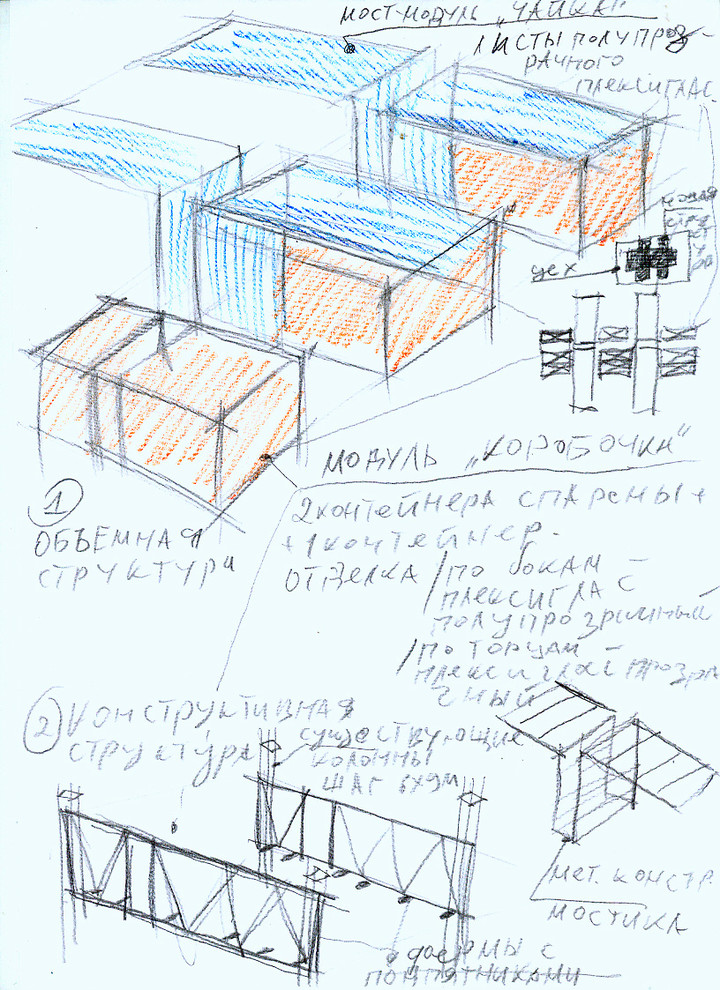 МОСТ-МОДУЛЬ „ЧАЙКА"
ЛИСТЫ ПОЛУПРОЗ-
РАЧНОГО
ПЛЕКСИГЛАС.
НОВАЯ
ЦЕХ
МОДУЛЬ „КОРОБОЧКИ"
2 КОНТЕЙНЕРА СПАРЕНЫ +
+ 1 КОНТЕЙНЕР.
ОТДЕЛКА / ПО БОКАМ –
ПЛЕКСИГЛАС
ПОЛУПРОЗРАЧНЫЙ
/ ПО ТОРЦАМ –
ПЛЕКСИГЛАС ПРОЗРА
ЧНЫЙ
1
ОБЪЕМНАЯ
СТРУКТУРА
2 КОНСТРУКТИВНАЯ
СТРУКТУРА
СУЩЕСТВУЮЩИЕ
КОЛОННЫ
ШАГ 6х9м
МЕТ. КОНСТР.
МОСТИКА
ФЕРМЫ С
ПОДПЯТНИКАМИ